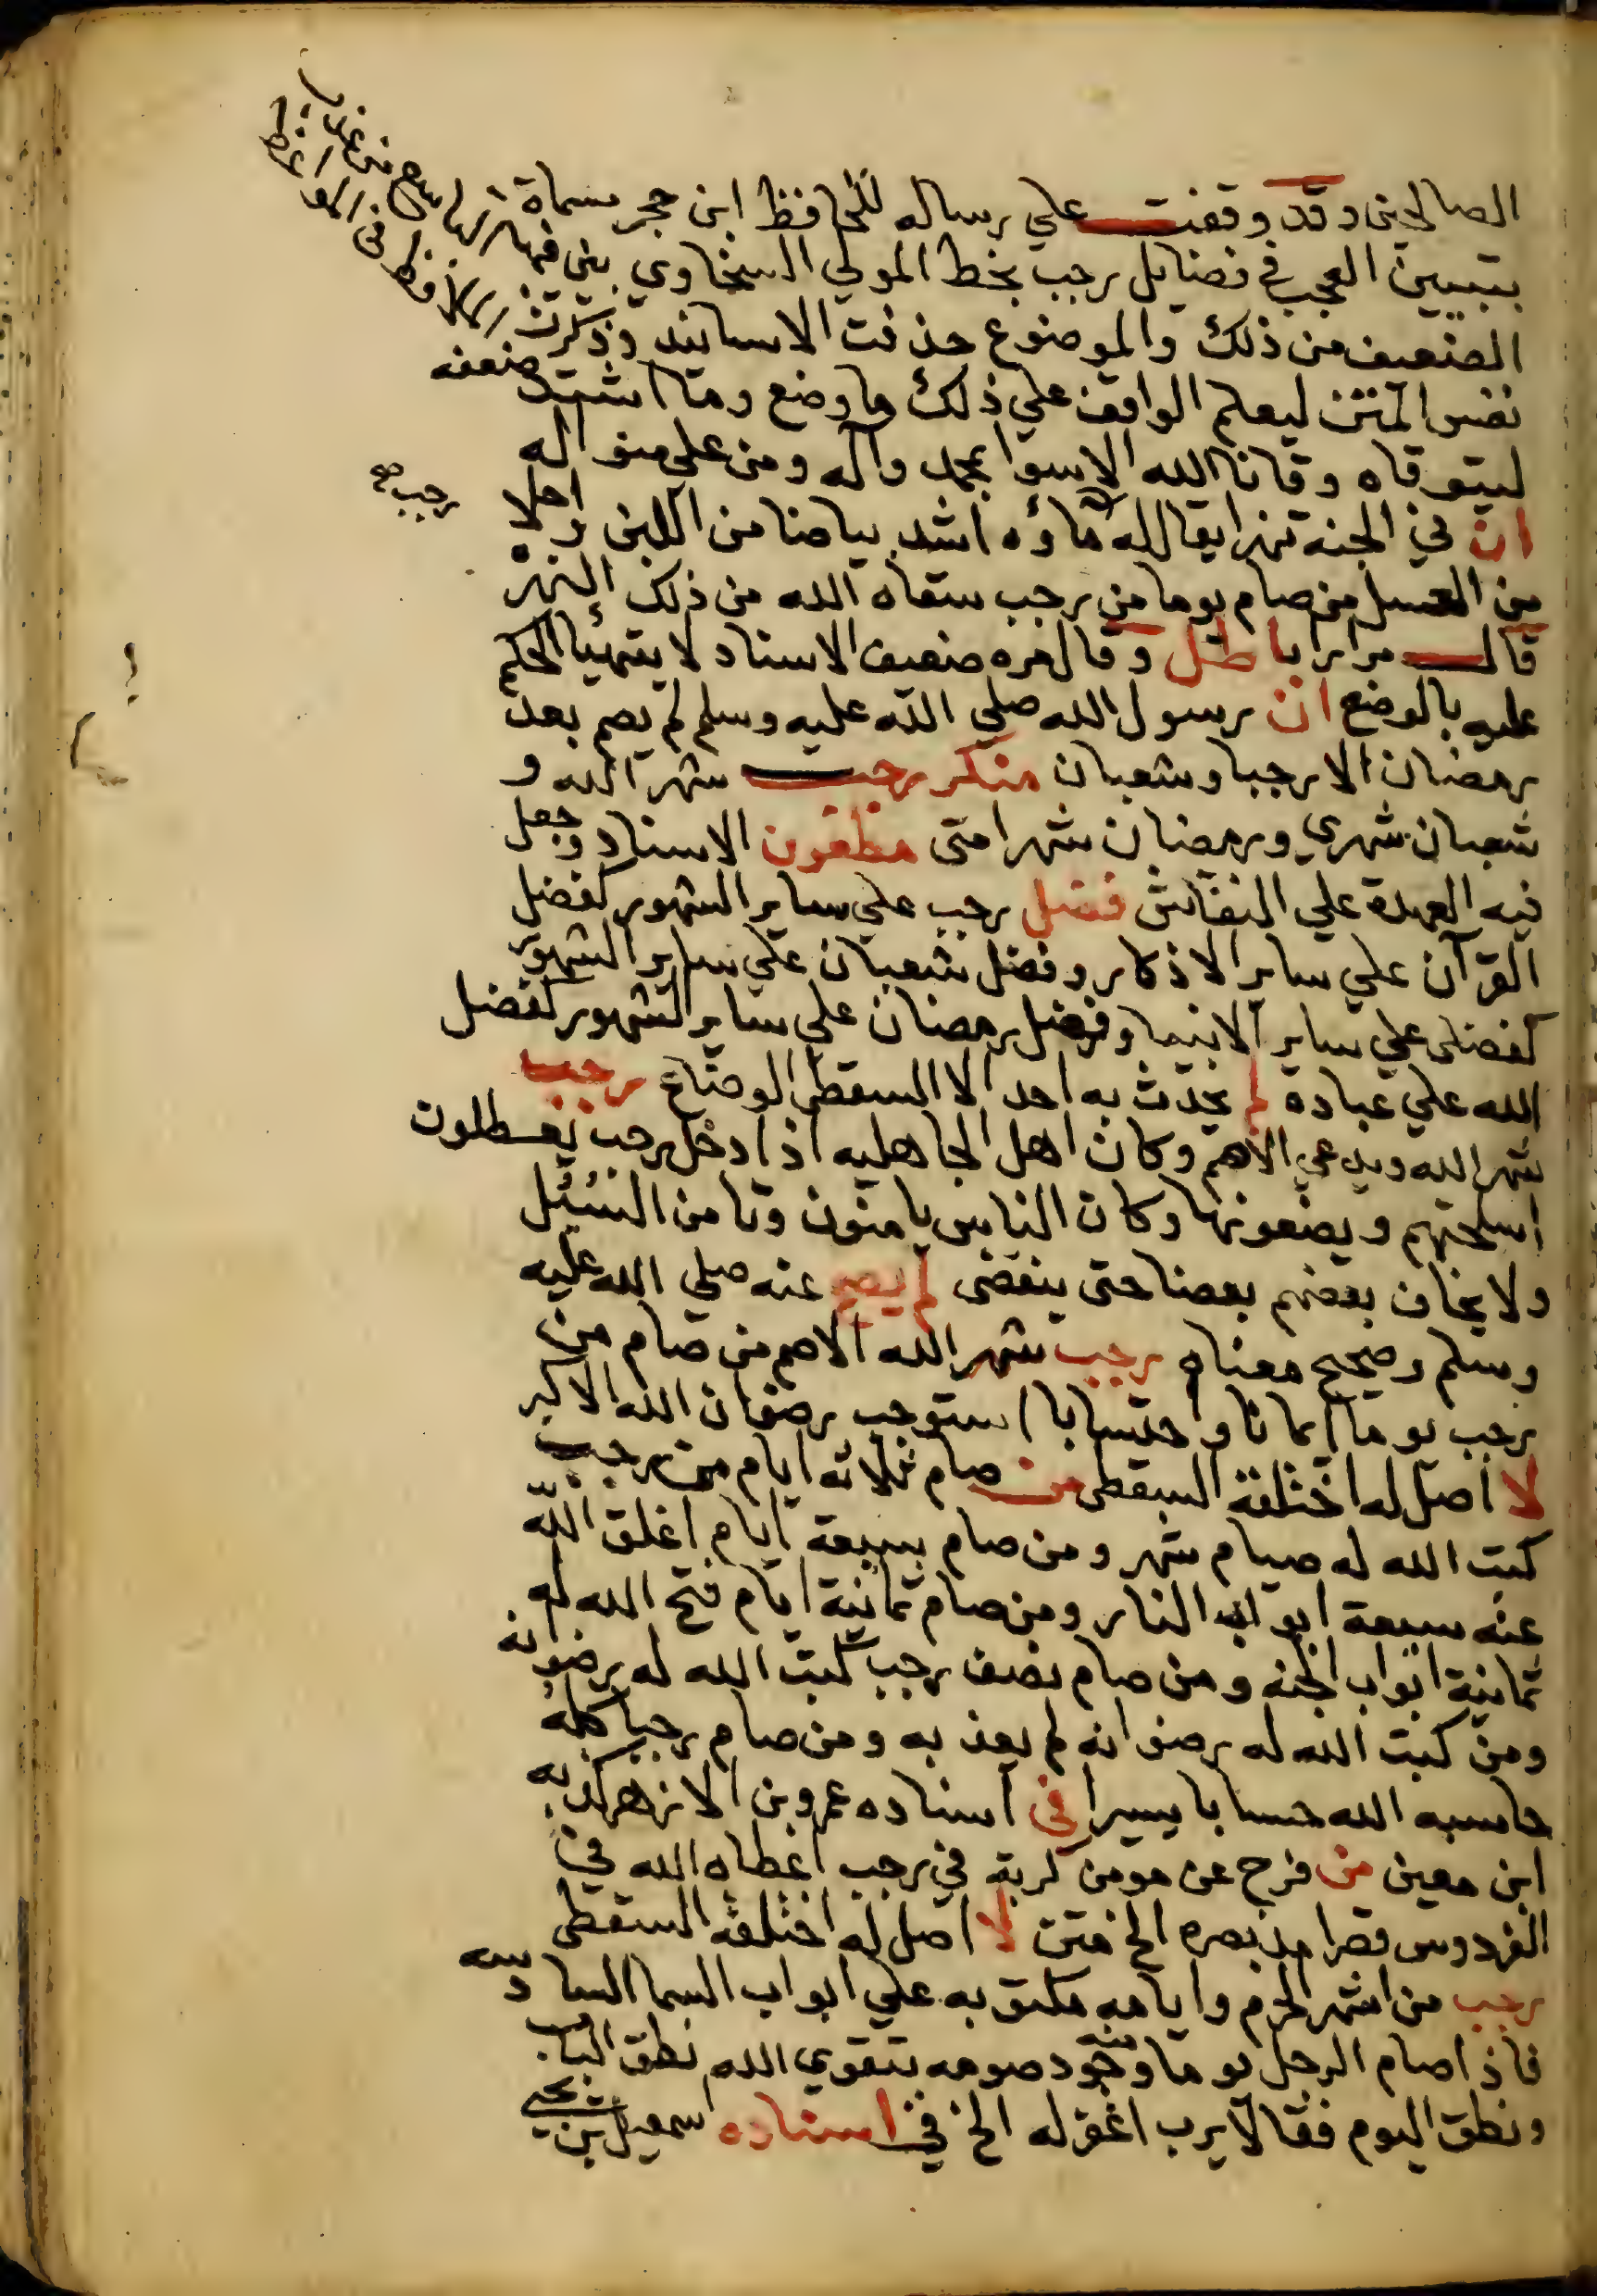 الصالحين وقد وقفت علي رساله للحافظ ابن حجر مسماة
بتبيين العجب في فضايل رجب بخط المولي السخاوي بين فيها
الضعيف من ذلك والموضوع حذفت الاسانيد وذكرت
نفس المتن ليعلم الواقف علي ذلك ما وضع وما اشتد ضعفه
ليتوقاه وقانا الله الاسوا بمحمد وآله ومن علي منواله
ان في الجنه نهرا يقال له ماؤه اشد بياضا من اللبن واحلا
رجب صح
من العسل من صام يوما من رجب سقاه الله من ذلك النهر
قال مرارا باطل وقال مره ضعيف الاسناد لا يتهيا الحكم
عليه بالوضع ان رسول الله صلي الله عليه وسلم لم يصم بعد
رمضان الا رجبا وشعبان منكر رجب شهر الله و
شعبان شهري ورمضان شهر امتى مطعون الاسناد وجعل
فيه العهدة علي النقاش فضل رجب علي ساير الشهور كفضل
القرآن علي ساير الاذكار وفضل شعبان علي ساير الشهور
كفضلى علي ساير الانبيا وفضل رمضان علي ساير الشهور كفضل
الله علي عباده لم يحدث به احد الا السقطى الوضاع رجب
شهر الله ويدعي الاصم وكان اهل الجاهليه اذا دخل رجب يعطلون
اسلحتهم ويضعونها وكان الناس يامنون وتامن السبيل
ولا يخاف بعضهم بعضا حتى ينقضى لم يصح عنه صلي الله عليه
وسلم وصحيح معناه رجب شهر الله الاصم من صام من
رجب يوما ايمانا واحتسابا استوجب رضوان الله الاكبر
لا اصل له اختلقه السقطى من صام ثلاثه ايام من رجب
كتب الله له صيام شهر ومن صام سبعة ايام اغلق الله
عنه سبعة ابواب النار ومن صام ثمانية ايام فتح الله له
ثمانية ابواب الجنه ومن صام نصف رجب كتب الله له رضوانه
ومن كتب الله له رضوانه لم يعذبه ومن صام رجبا كله
حاسبه الله حسابا يسيرا في اسناده عمرو بن الازهر كذبه
ابن معين من فرج عن مومن كربة في رجب اعطاه الله في
الفردوس قصرا مد بصره الخ متن لا اصل له اختلقه السقطى
رجب من اشهر الحرم وايامه مكتوبه علي ابواب السما السادسه
فاذا صام الرجل يوما منه وجود صومه بتقوي الله نطق الباب
ونطق اليوم فقالا يرب اغفر له الخ في اسناده اسمعيل بن يحيي